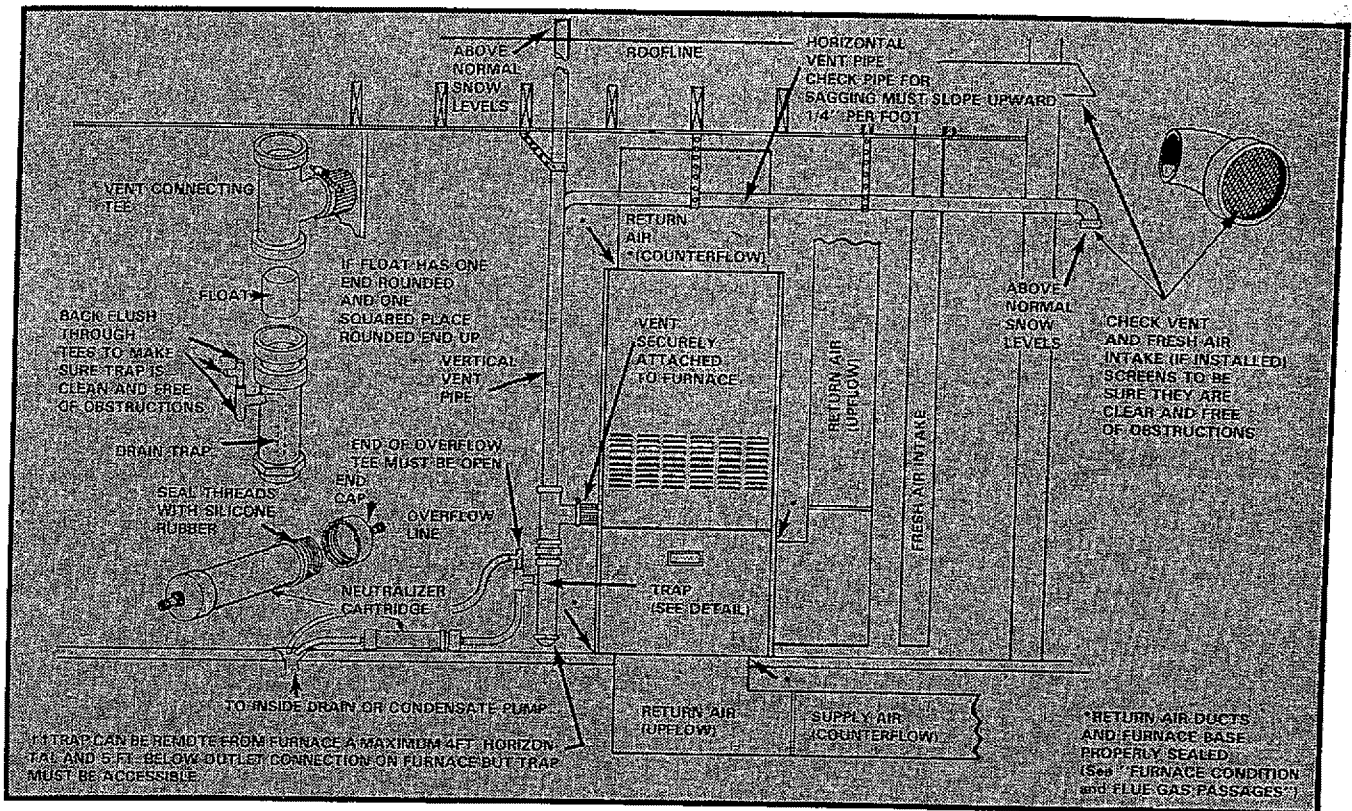 ABOVE
NORMAL
SNOW
LEVELS
ROOFLINE
HORIZONTAL
VENT PIPE
CHECK PIPE FOR
SAGGING MUST SLOPE UPWARD
1/4" PER FOOT
VENT CONNECTING
TEE
FLOAT
IF FLOAT HAS ONE
END ROUNDED
AND ONE
SQUARED PLACE
ROUNDED END UP
BACK FLUSH
THROUGH
TEES TO MAKE
SURE TRAP IS
CLEAN AND FREE
OF OBSTRUCTIONS
DRAIN TRAP
VERTICAL
VENT
PIPE
RETURN
AIR
*(COUNTERFLOW)
VENT
SECURELY
ATTACHED
TO FURNACE
RETURN AIR
(UPFLOW)
FRESH AIR INTAKE
ABOVE
NORMAL
SNOW
LEVELS
CHECK VENT
AND FRESH AIR
INTAKE (IF INSTALLED)
SCREENS TO BE
SURE THEY ARE
CLEAR AND FREE
OF OBSTRUCTIONS
END OF OVERFLOW
TEE MUST BE OPEN
SEAL THREADS
WITH SILICONE
RUBBER
END
CAP
OVERFLOW
LINE
NEUTRALIZER
CARTRIDGE
TRAP
(SEE DETAIL)
*
*
*
*
TO INSIDE DRAIN OR CONDENSATE PUMP
TRAP CAN BE REMOTE FROM FURNACE A MAXIMUM 4FT. HORIZON-
TAL AND 5 FT. BELOW OUTLET CONNECTION ON FURNACE BUT TRAP
MUST BE ACCESSIBLE
RETURN AIR
(UPFLOW)
SUPPLY AIR
(COUNTERFLOW)
*RETURN AIR DUCTS
AND FURNACE BASE
PROPERLY SEALED
(See "FURNACE CONDITION
and FLUE GAS PASSAGES")